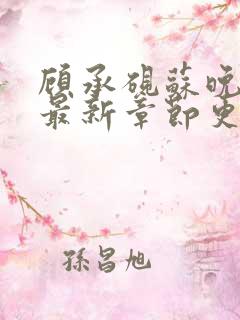 顾承砚蘇晚
最新章節更
孫昌旭